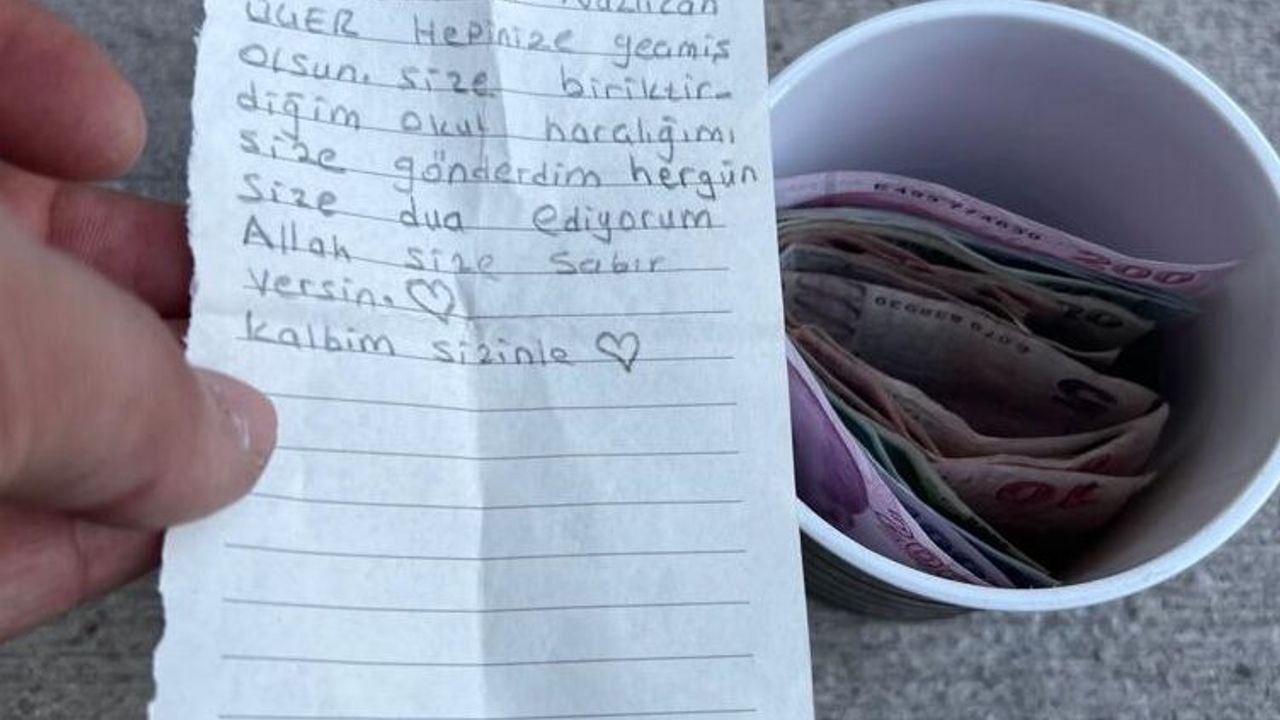 Hepinize geçmiş
Olsun. size biriktir-
diğim okul harçlığımı
size gönderdim hergün
Size dua ediyorum
Allah size Sabır
Versin. ♡
Kalbim sizinle ♡
200
5
10